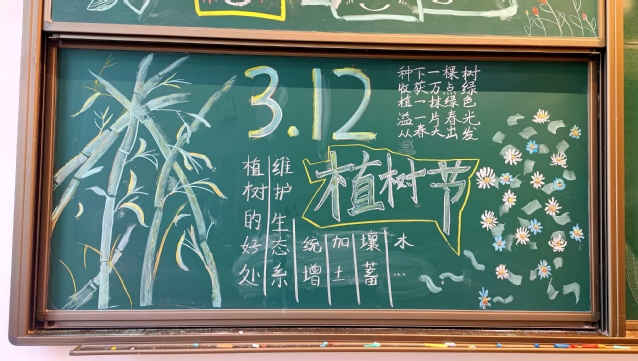 3.12
植树节
种下一棵树
收获万点绿
植一抹绿色
溢一片春光
从春天出发
植树的好处
维护生态系
统增
加土
壤蓄
水…